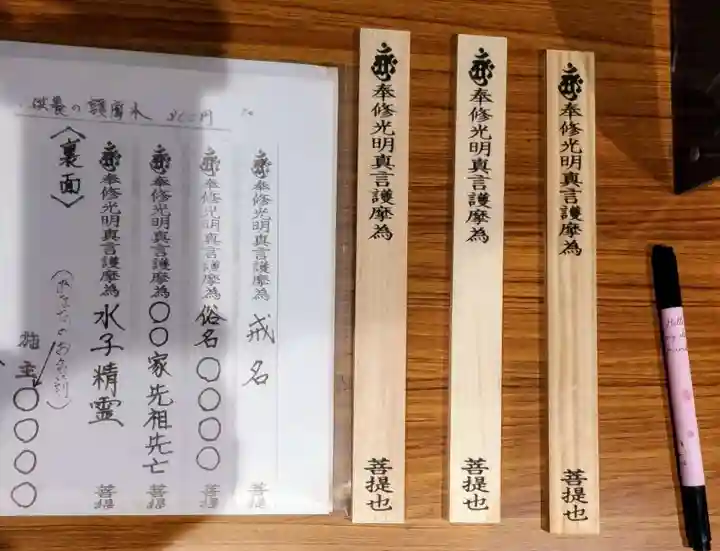 供養の護摩木 200円
奉修光明真言護摩為 戒名 菩提
奉修光明真言護摩為 俗名〇〇〇〇 菩提
奉修光明真言護摩為 〇〇家先祖先亡 菩提
奉修光明真言護摩為 水子精霊 菩提
〈裏面〉
(あなたのお名前)
施主〇〇〇〇
奉修光明真言護摩為 菩提也
奉修光明真言護摩為 菩提也
奉修光明真言護摩為 菩提也
Hello